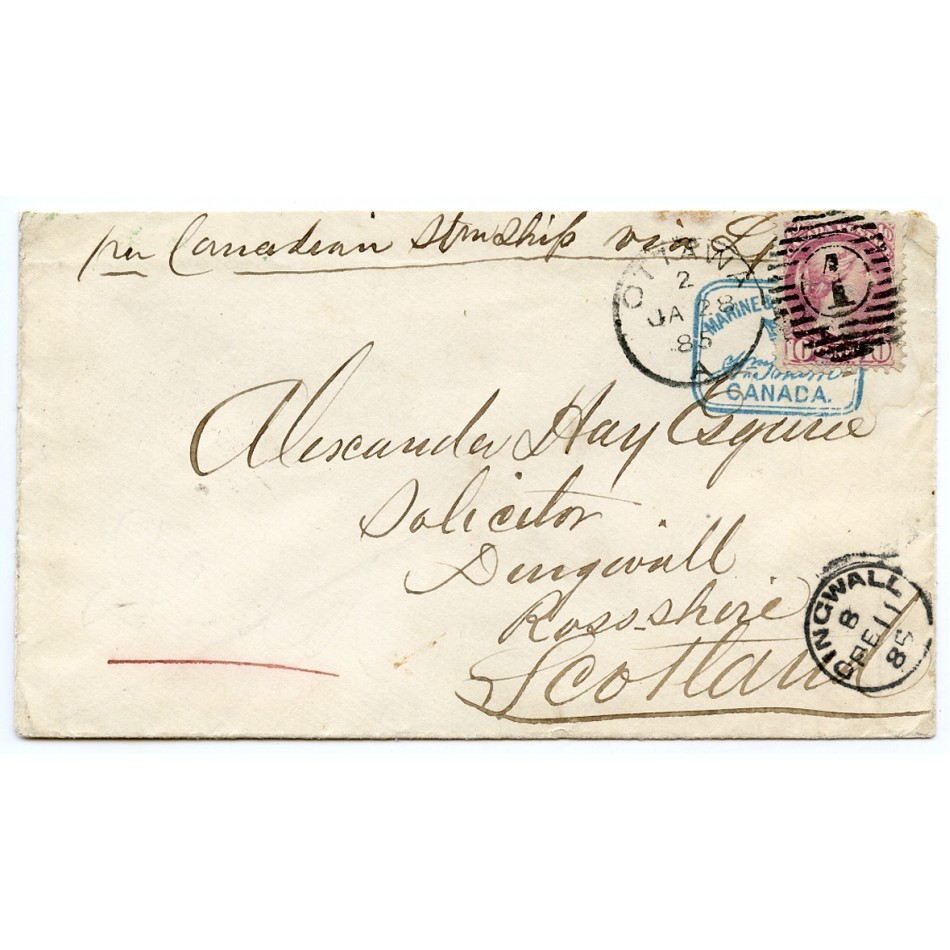 per Canadian Stmship via
OTTAWA
2
JA 28
85
A
MARINE
CANADA.
A
1
10 10
Alexander Hay Esquire
Solicitor
Dingwall
Ross-shire
Scotland
DINGWALL
8
FE 11
85